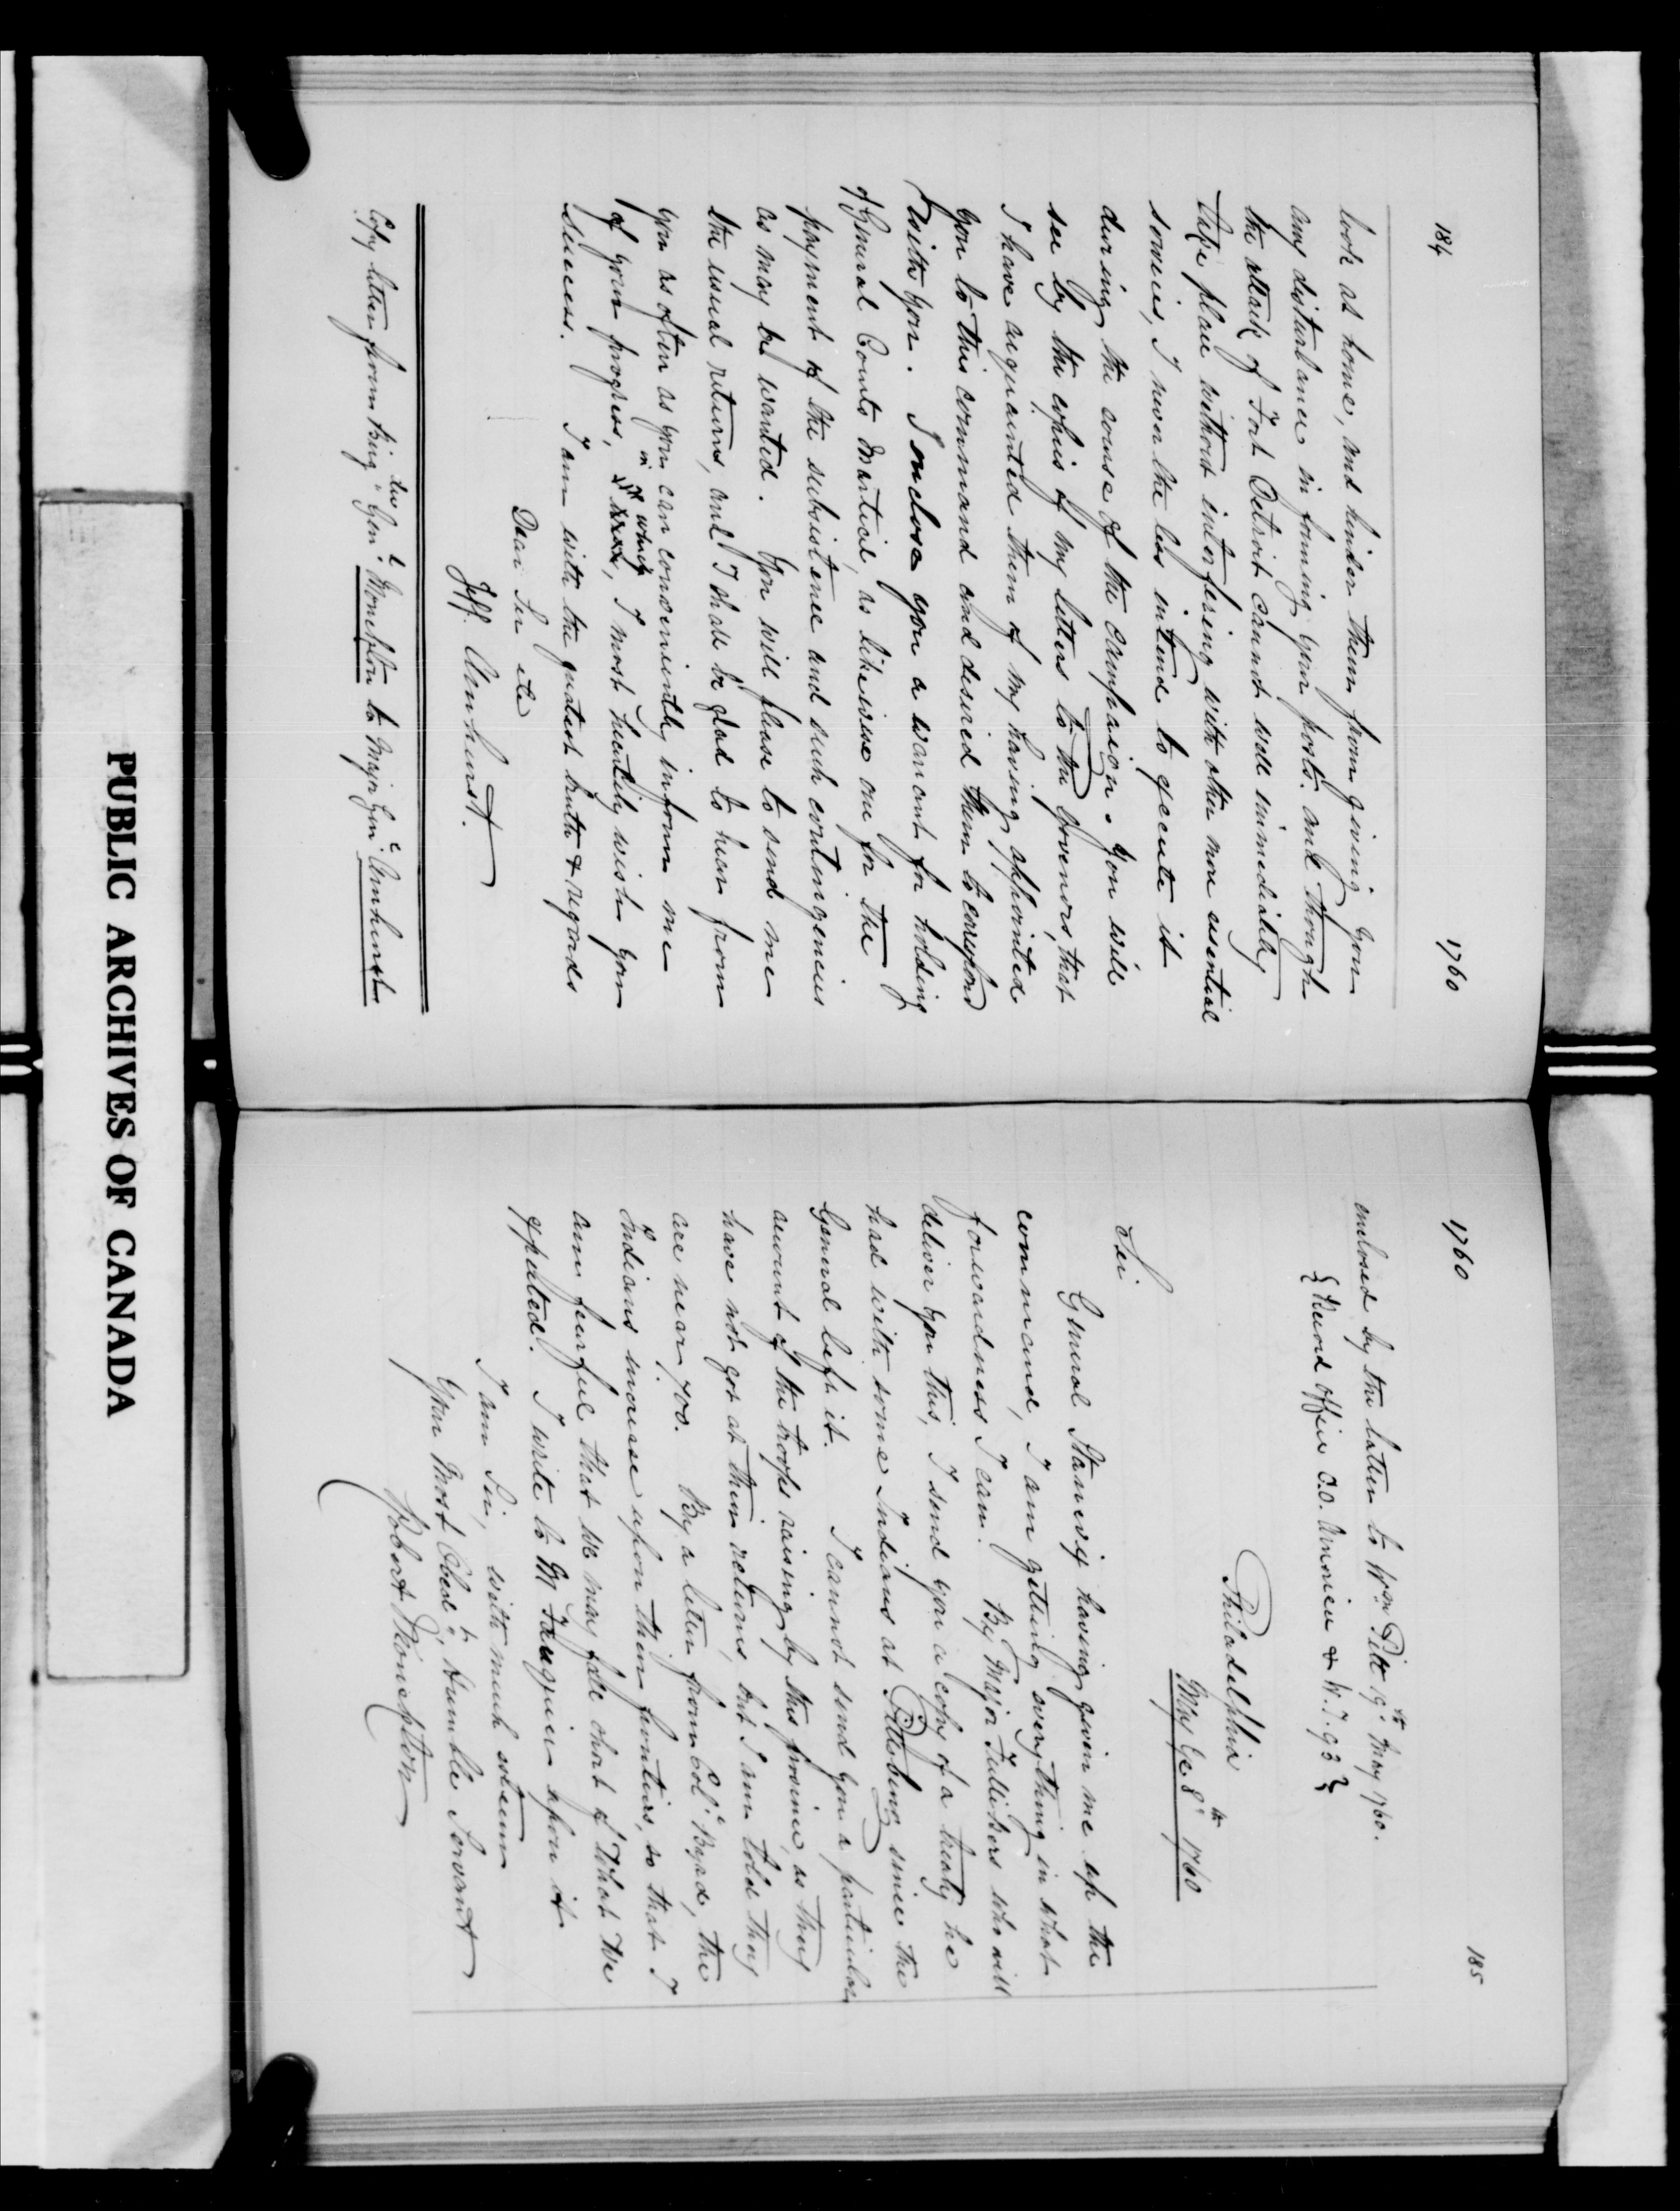 184
1760
look at home, and hinder them from giving you
any disturbance in forming your posts. and though
the attack of Fort Detroit cannot well immediately
take place without interfering with other more essential
services, I never the less intend to execute it
during the course of the campaign. You will
see by the copies of my letters to the Governors, that
I have acquainted them of my having appointed
you to this command and desired them to correspond
with you. I enclose you a warrant for holding
of General Courts Martial, as likewise one for the
payment of the subsistence and such contingencies
as may be wanted. You will please to send me
the usual returns, and I shall be glad to hear from
you as often as you can conveniently inform me
of your progress, in which, I most heartily wish you
success. I am with the greatest truth & regards
Dear Sir etc
Jeff. Amherst.
Copy letter from Brig: dier Gen: l Monckton to Major Gen: l Amherst
1760
185
enclosed by the latter to Wm Pitt 9: th May 1760.
{Record Office C.O. America & W.I. 93}
Philadelphia
May Ye 8: th 1760
Sir
General Stanwix having given me up the
command, I am getting everything in what
forwardness I can. By Major Tullikens who will
deliver you this, I send you a copy of a treaty he
had with some Indians at Pittsburg since the
General left it. I cannot send you a particular
account of the troops raising by this province, as they
have not got at their returns, but I am told they
are near 700. By a letter from Col: o Byrd, the
Indians increase upon their frontiers, so that I
am fearful that we may fall short of what We
expected. I write to Mr Fauquier upon it
I am Sir, with much esteem
Your Most Obed: t Humble Servant
Robert Monckton
PUBLIC ARCHIVES OF CANADA